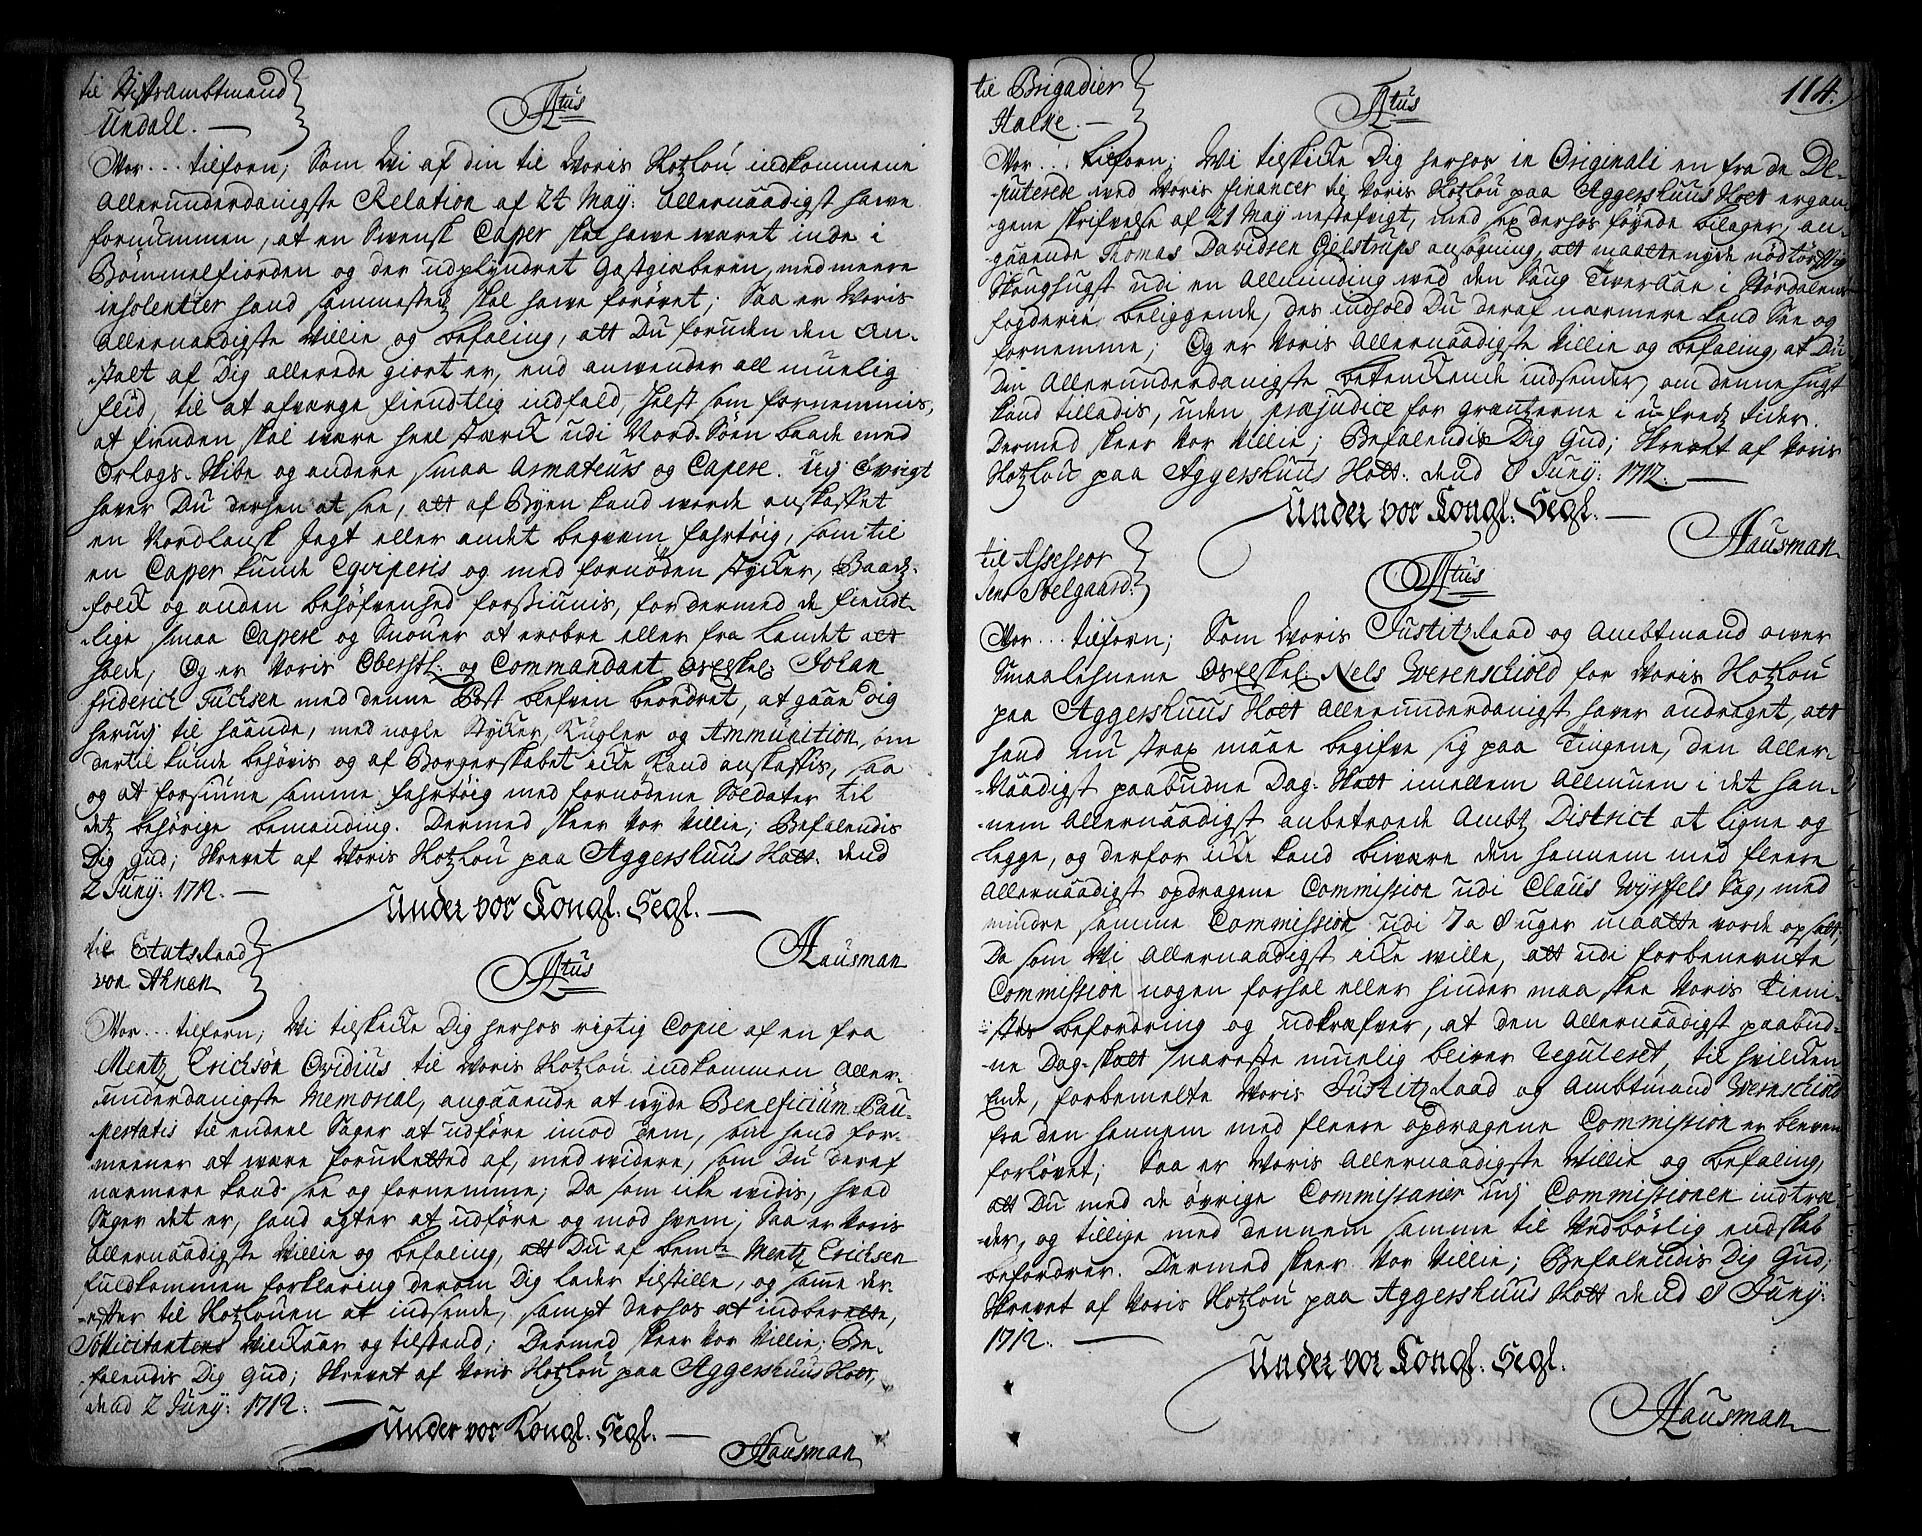 til Stiftambtmand
Undall. —
F4tus
Vor... tilforn; Som Wi af din til Woris Hotzlou indkommene
Allerunderdanigste Relation af 24 May: Allernaadigst hawe
fornummen, at en Swensk Caper skal hawe wæret inde i
Bömmelfiorden og der udplyndret Gastgieberen, med meere
insolentier hand sammestedz skal hawe forövet; Saa er Woris
Allernaadigste Willie og befaling, att Du foruden den An-
stalt af Dig allerede giort er, end anwender all muelig
fliid, til at afværge fiendtlig indfald, helst som fornemmis,
at fienden skal wære heel stærck udi Nord-Söen baade med
Orlogs-Skibe og andere smaa Armateurs og Capere. Udj Övrigt
hawer Du derhen at see, att af Byen kand worde anskaffet
en Nordlansk Jagt eller andet beqvem fahrtöig, som til
en Caper kunde Eqviperis og med fornöden stycker, Baadz-
folck og anden behöfvenhed forsiunis, for dermed de fiendt-
lige smaa Capere og Snouer at erobre eller fra Landet att
holde, Og er Woris Oberstl. og Commandant Os Elskel. Johan
friderich Füchsen med denne Post blefven beordret, at gaae dig
herudj til haande, med nogle Stycker, Kugler og Ammunition, om
dertil kunde behövis og af Borgerskabet icke kand anskaffis, saa
og at forsiune samme fahrtöig med fornödene Soldater til
detz behörige bemanding. Dermed skeer Vor Villie; Befalendis
Dig Gud; Skrevet af Woris Hotzlou paa Aggershuus Hott. dend
2 Junij: 1712. —
Under vor Kongl. Segl. —
Hausman
til Etatsraad
von Ahnen
F4tus
Vor... tilforn; Wi tilskicke Dig herhos rigtig Copie af en fra
Mentz Erichsön Ovidius til Woris Hotzlou indkommen Aller-
underdanigste Memorial, angaaende at nyde Beneficium Pau-
pertatis til endeel Sager at udföre imod dem, som hand for-
meener at wære foruretted af, med widere, som Du deraf
nærmere kand see og fornemme; Da som icke widis, hvad
Sager det er, hand agter at udföre og mod hvem; Saa er Woris
Allernaadigste Villie og befaling, att Du af bemte Mentz Erichsen
fuldkommen forklaring derom Dig lader tilstille, og same der-
efter til Hotzlouen at indsende, sampt derhos at indberette,
Sollicitantens Wilckaar og tilstand; Dermed skeer Vor Villie; Be-
falendis Dig Gud; Skrevet af Woris Hotzlou paa Aggershuus Hott,
dend 2 Junij: 1712. —
Under vor Kongl. Segl. —
Hausman
114.
til Brigadier
—
F4tus
Vor... tilforn; Wi tilskicke Dig herhos in Originali en fra de De-
puterede wed Woris financer til Woris Hotzlou paa Aggershuus Hott ergan-
gene skrifvelse af 21 May nestafvigt, med sex derhos föyede bilager, an-
gaaende Thomas Davidsen Gielstrups ansögning, att maatte nyde nödtörfftig
Skoughugst udi en Allminding wed den Saug Tweraae i Stördalens
fogderie beliggende, des indhold Du deraf nærmere kand See og
fornemme; Og er Woris Allernaadigste Villie og befaling, at Du
Din Allerunderdanigste betenckende indsender, om denne hugst
kand tilladis, uden præjudice for grentzerne i ufredz tider.
Dermed skeer Vor Villie; Befalendis Dig Gud; Skrevet af Woris
Hotzlou paa Aggershuus Hott. dend 8 Junij: 1712. —
Under vor Kongl. Segl. —
Hausman
til Assessor
Jens Soelgaard.
F4tus
Vor... tilforn; Som Woris Justitzraad og Ambtmand ower
Smaalehnene Os Elskel. Nels Werenschiold for Woris Hotzlou
paa Aggershuus Hott Allerunderdanigst hawer andraget, att
hand nu strax maae begifve sig paa Tingene, den Aller-
Naadigst paabudne Dag-Skatt imellem Allmuen i det han-
nem Allernaadigst anbetroede Ambtz District at ligne og
legge, og derfor icke kand biwære den hannem med fleere
Allernaadigst opdragene Commission udi Claus Wyffels Sag, med
mindre samme Commission udi 7 a 8 uger maatte worde opsatt,
Da som Wi Allernaadigst icke wille, att udi forbenevnte
Commission nogen forhal eller hinder maa skee Woris Tieni-
stes befordring og udkræfver, at den Allernaadigst paabud-
ne Dag-skatt snareste muelig bliver reguleret, til hvilcken
Ende, forbemelte Woris Justitzraad og Ambtmand Wernschiold
fra den hannem med fleere opdragene Commission er bleven
forlövet; Saa er Woris Allernaadigste Willie og befaling,
att Du med de övrige Commissarier udj Commissionen indtræ-
der, og tillige med dennem samme til Vedbörlig endskab
befordrer. Dermed skeer Vor Villie; Befalendis Dig Gud;
Skrevet af Woris Hotzlou paa Aggershuus Hott dend 8 Junij:
1712. —
Under vor Kongl. Segl.
Hausman